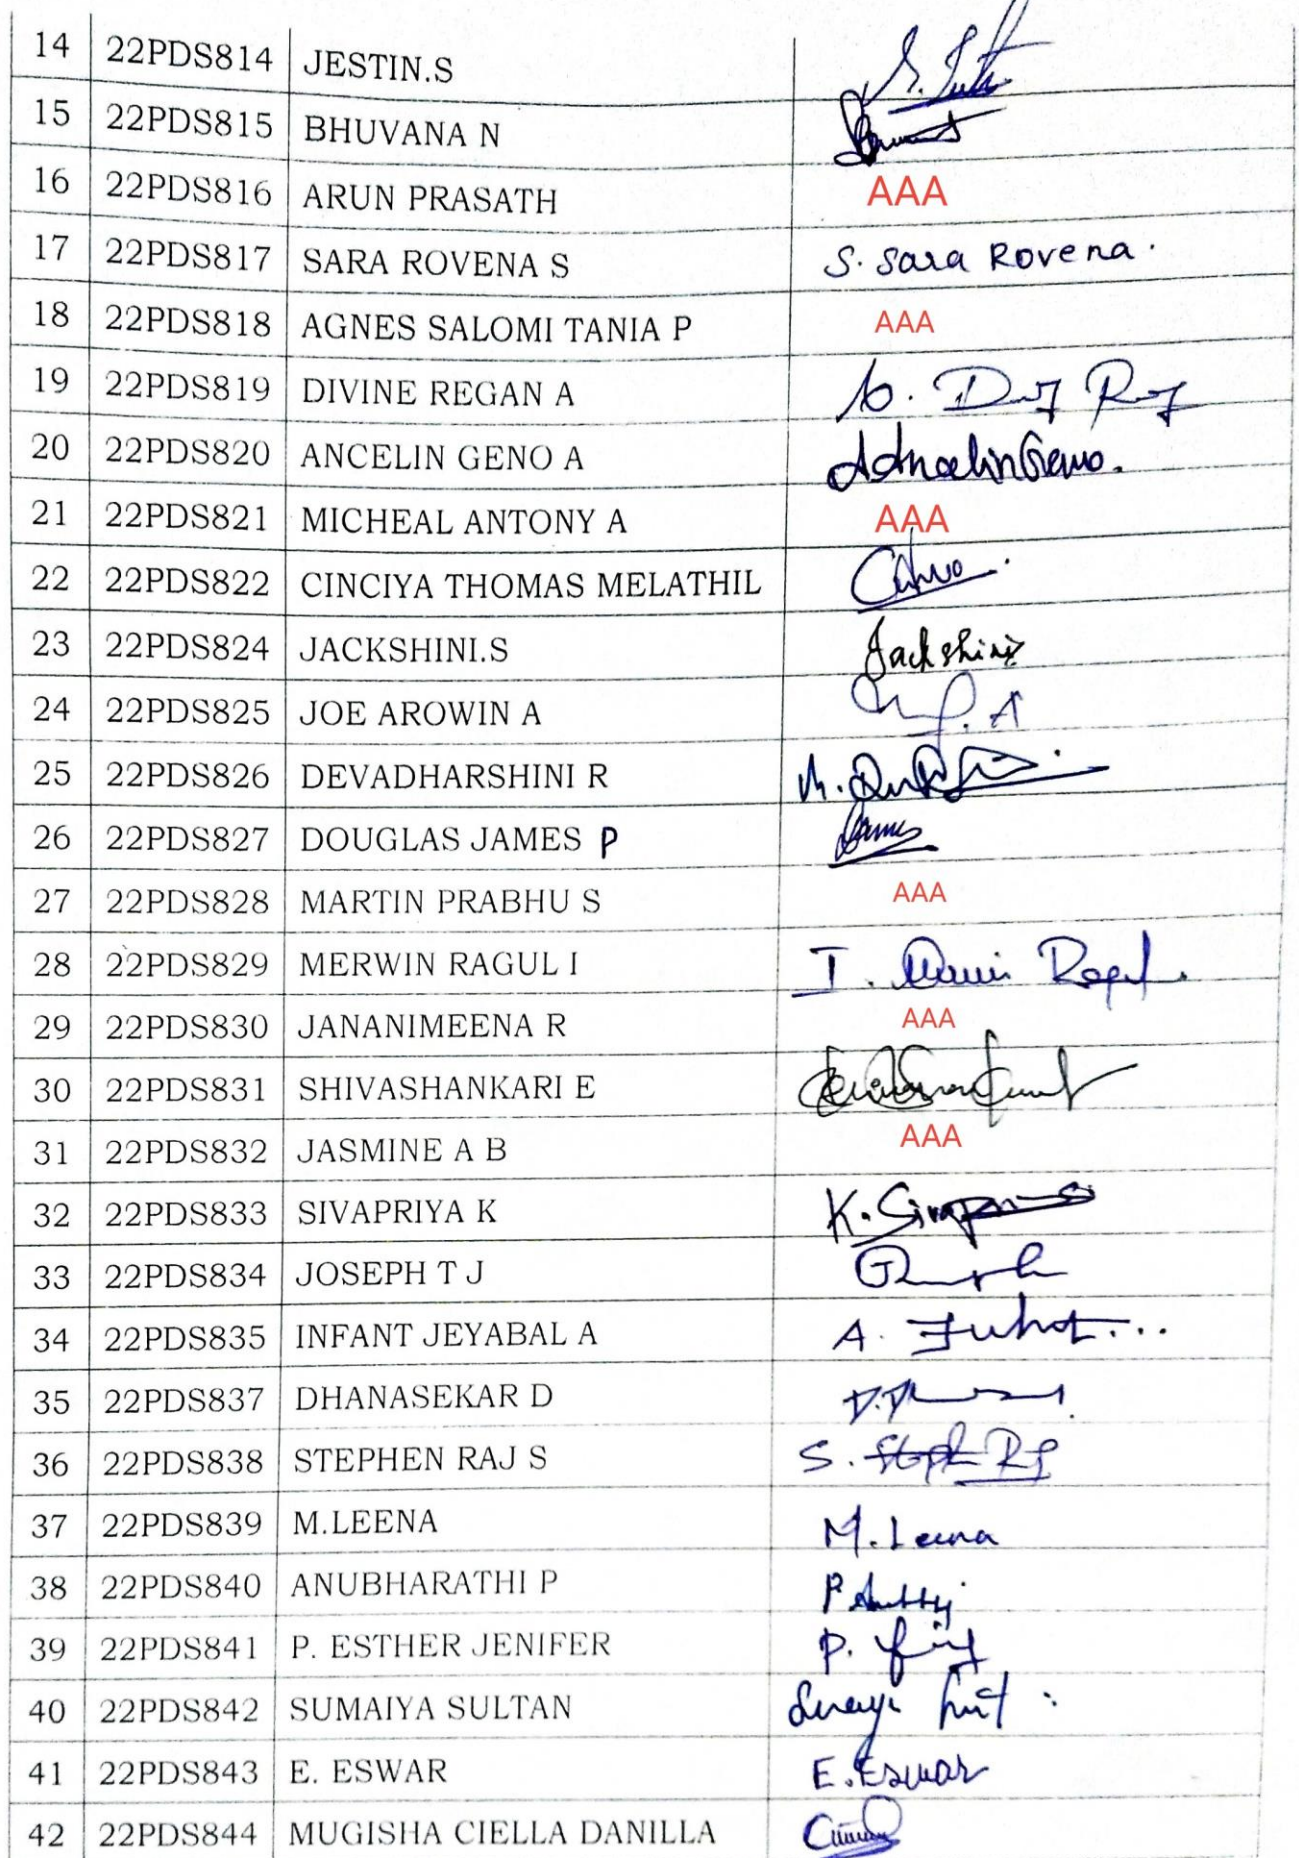 14 22PDS814 JESTIN.S
15 22PDS815 BHUVANA N
16 22PDS816 ARUN PRASATH AAA
17 22PDS817 SARA ROVENA S S. Sara Rovena.
18 22PDS818 AGNES SALOMI TANIA P AAA
19 22PDS819 DIVINE REGAN A
20 22PDS820 ANCELIN GENO A
21 22PDS821 MICHEAL ANTONY A AAA
22 22PDS822 CINCIYA THOMAS MELATHIL
23 22PDS824 JACKSHINI.S Jackshini
24 22PDS825 JOE AROWIN A
25 22PDS826 DEVADHARSHINI R
26 22PDS827 DOUGLAS JAMES P James
27 22PDS828 MARTIN PRABHU S AAA
28 22PDS829 MERWIN RAGUL I I.
29 22PDS830 JANANIMEENA R AAA
30 22PDS831 SHIVASHANKARI E
31 22PDS832 JASMINE A B AAA
32 22PDS833 SIVAPRIYA K K.
33 22PDS834 JOSEPH T J
34 22PDS835 INFANT JEYABAL A A.
35 22PDS837 DHANASEKAR D
36 22PDS838 STEPHEN RAJ S S.
37 22PDS839 M.LEENA M. Leena
38 22PDS840 ANUBHARATHI P P
39 22PDS841 P. ESTHER JENIFER P.
40 22PDS842 SUMAIYA SULTAN
41 22PDS843 E. ESWAR E. Eswar
42 22PDS844 MUGISHA CIELLA DANILLA